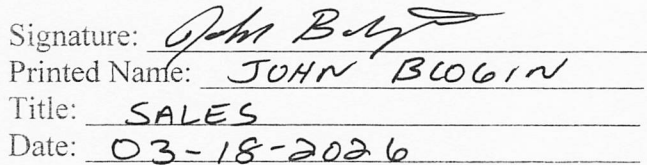 Signature: John
Printed Name: JOHN BLOGIN
Title: SALES
Date: 03-18-2026